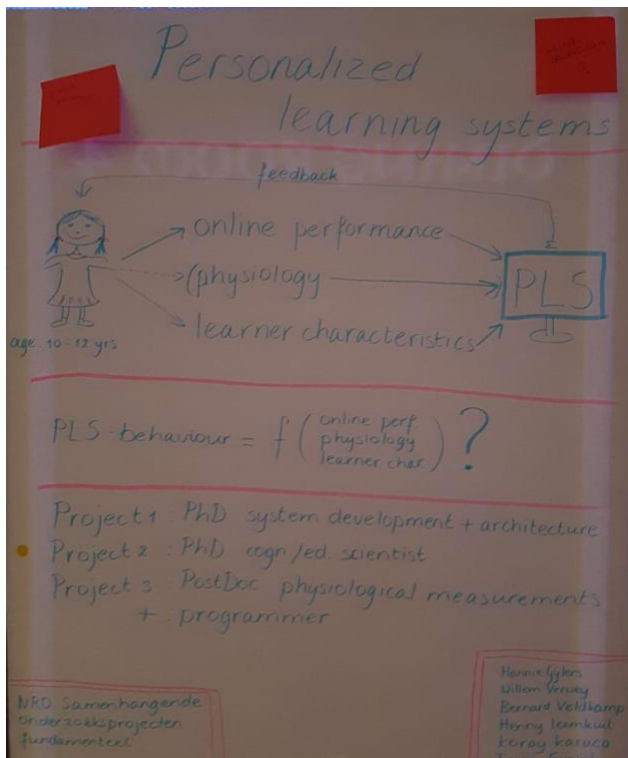 Personalized
learning systems
feedback
online performance
(physiology
learner characteristics
PLS
age 10-12 yrs
PLS behaviour = f ( online perf
physiology
learner char. ) ?
Project 1 : PhD system development + architecture
Project 2 : PhD cogn/ed. scientist
Project 3 : PostDoc physiological measurements
+ : programmer
NRO Samenhangende
onderzoeksprojecten
fundamenteel
Hannie Gijlers
Willem Verwey
Bernard Veldkamp
Henny Leemkuil
Koray Karaca